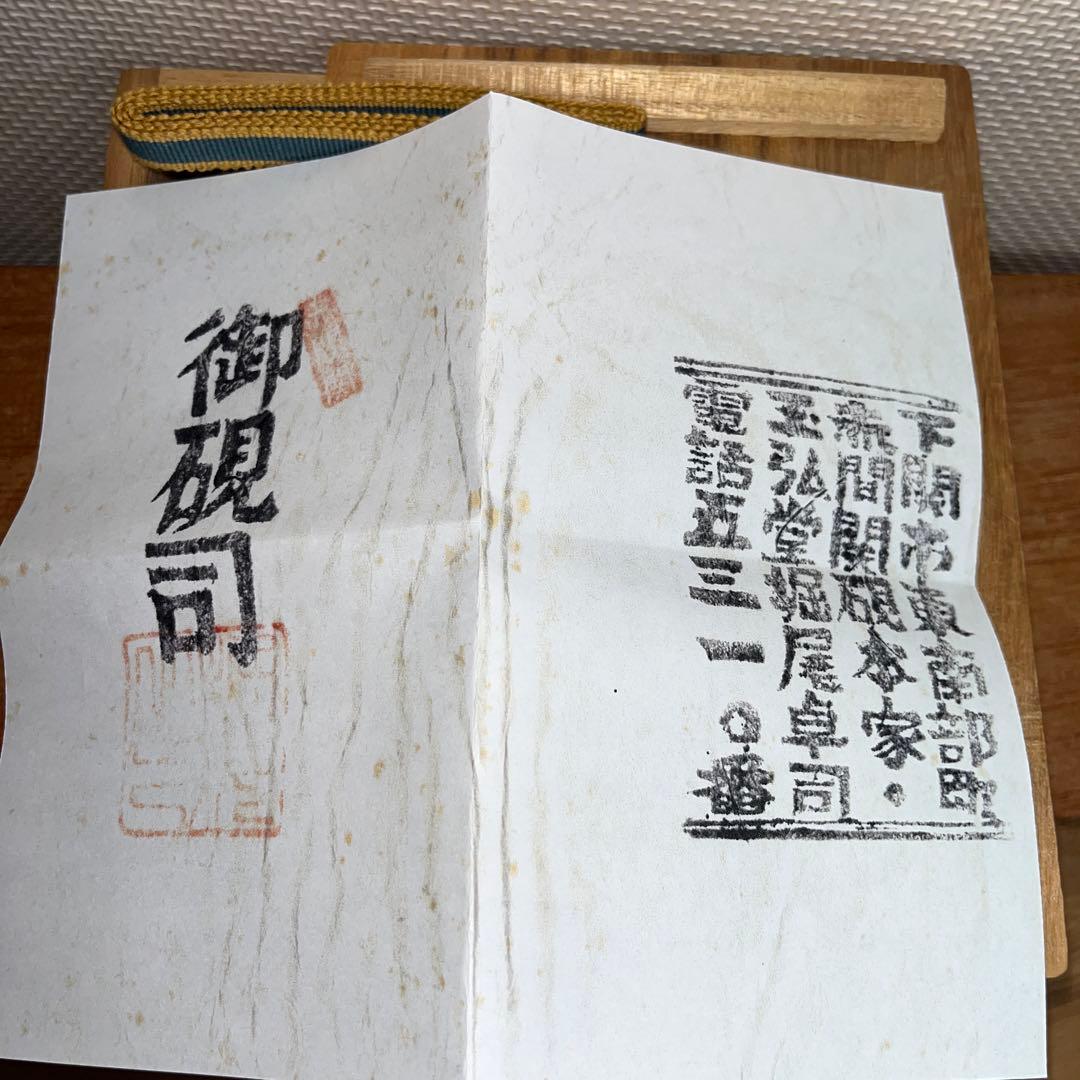 下關市東南部町
赤間関硯本家・
玉弘堂堀尾卓司
電話五三一〇番
御硯司